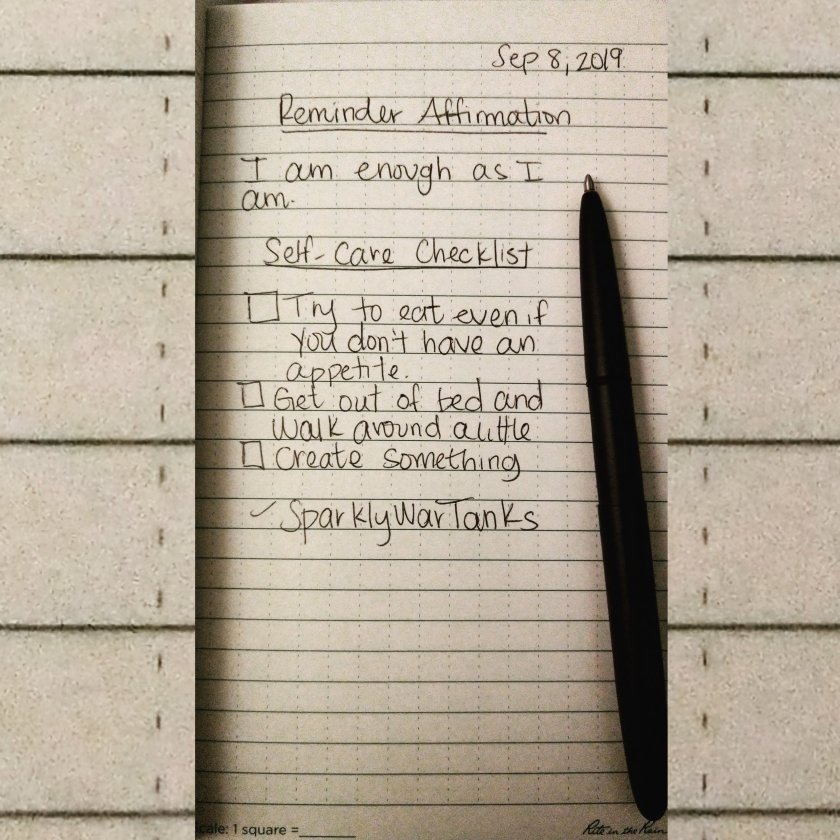 Sep 8, 2019
Reminder Affirmation
I am enough as I
am.
Self-Care Checklist
Try to eat even if
you don't have an
appetite.
Get out of bed and
walk around a little
Create something
SparklyWarTanks
cale: 1 square =
Rite in the Rain